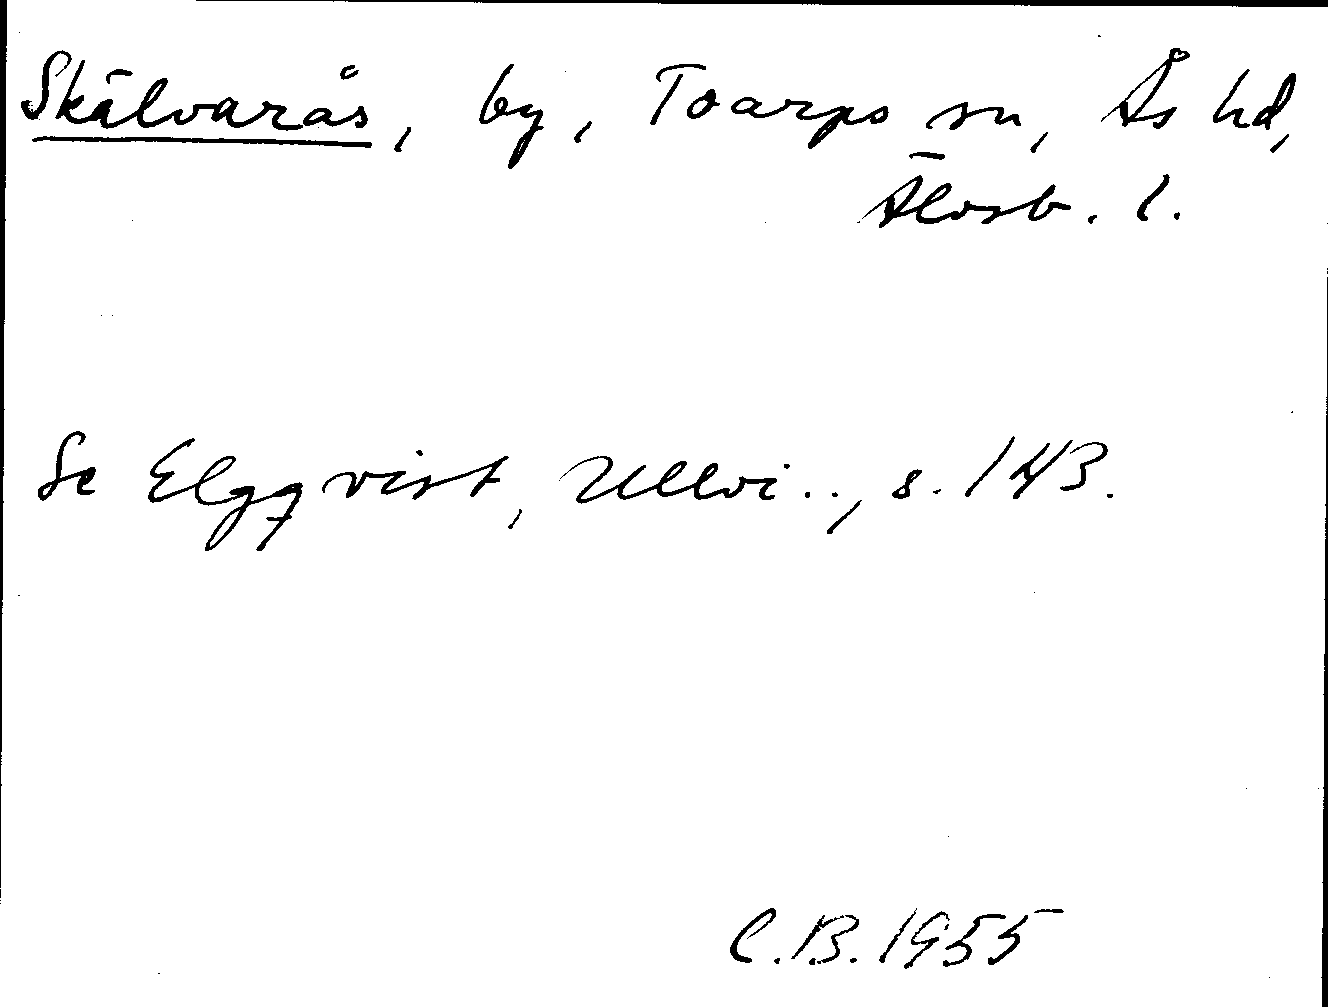 Skälvarås, by, Toarps sn, Ås hd,
Älvsb. l.
Se Elgqvist, Ullvi.., s. 143.
C.B. 1955